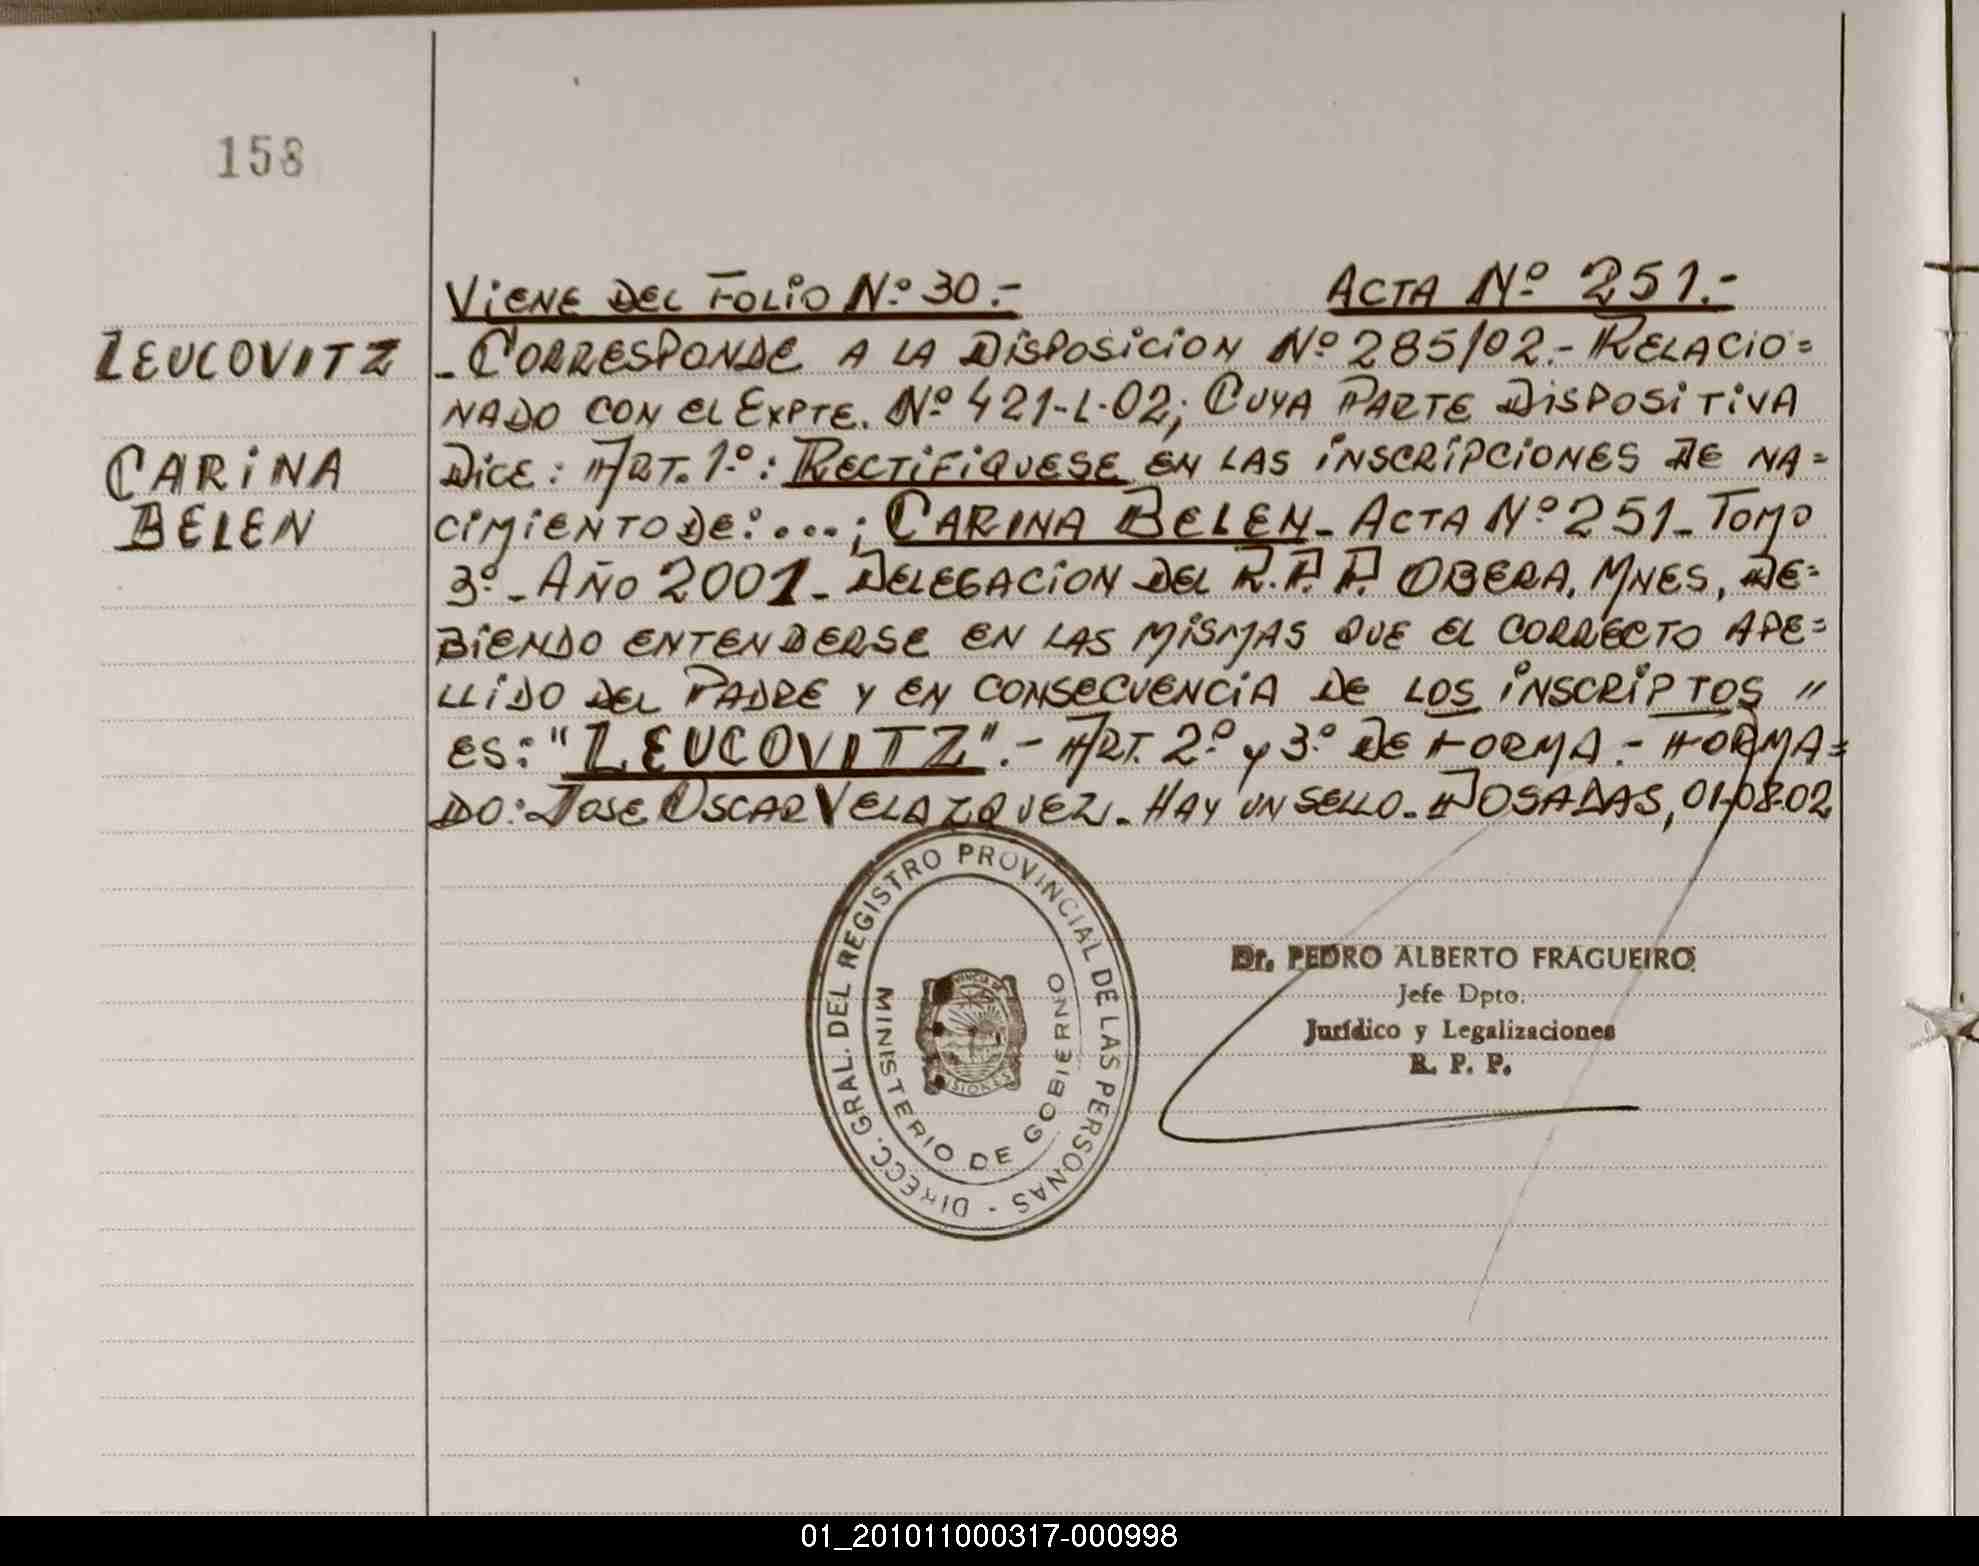 158
VIENE DEL FOLIO Nº 30.-
ACTA Nº 251.-
LEUCOVITZ
CARINA
BELEN
- CORRESPONDE A LA DISPOSICION Nº 285/02.- RELACIO=
NADO CON EL EXPTE. Nº 421-L-02; CUYA PARTE DISPOSITIVA
DICE: ART. 1º: RECTIFIQUESE EN LAS INSCRIPCIONES DE NA=
CIMIENTO DE: ...; CARINA BELEN - ACTA Nº 251 - TOMO
3º - AÑO 2001 - DELEGACION DEL R.P.P. OBERA, MNES, DE=
BIENDO ENTENDERSE EN LAS MISMAS QUE EL CORRECTO APE=
LLIDO DEL PADRE Y EN CONSECUENCIA DE LOS INSCRIPTOS "
ES: "LEUCOVITZ".- ART. 2º Y 3º DE FORMA.- FORMA=
DO: JOSE OSCAR VELAZQUEZ. HAY UN SELLO. POSADAS, 01-08-02
DIRECC. GRAL. DEL REGISTRO PROVINCIAL DE LAS PERSONAS -
MINISTERIO DE GOBIERNO
Dr. PEDRO ALBERTO FRAGUEIRO
Jefe Dpto.
Jurídico y Legalizaciones
R. P. P.
01_201011000317-000998